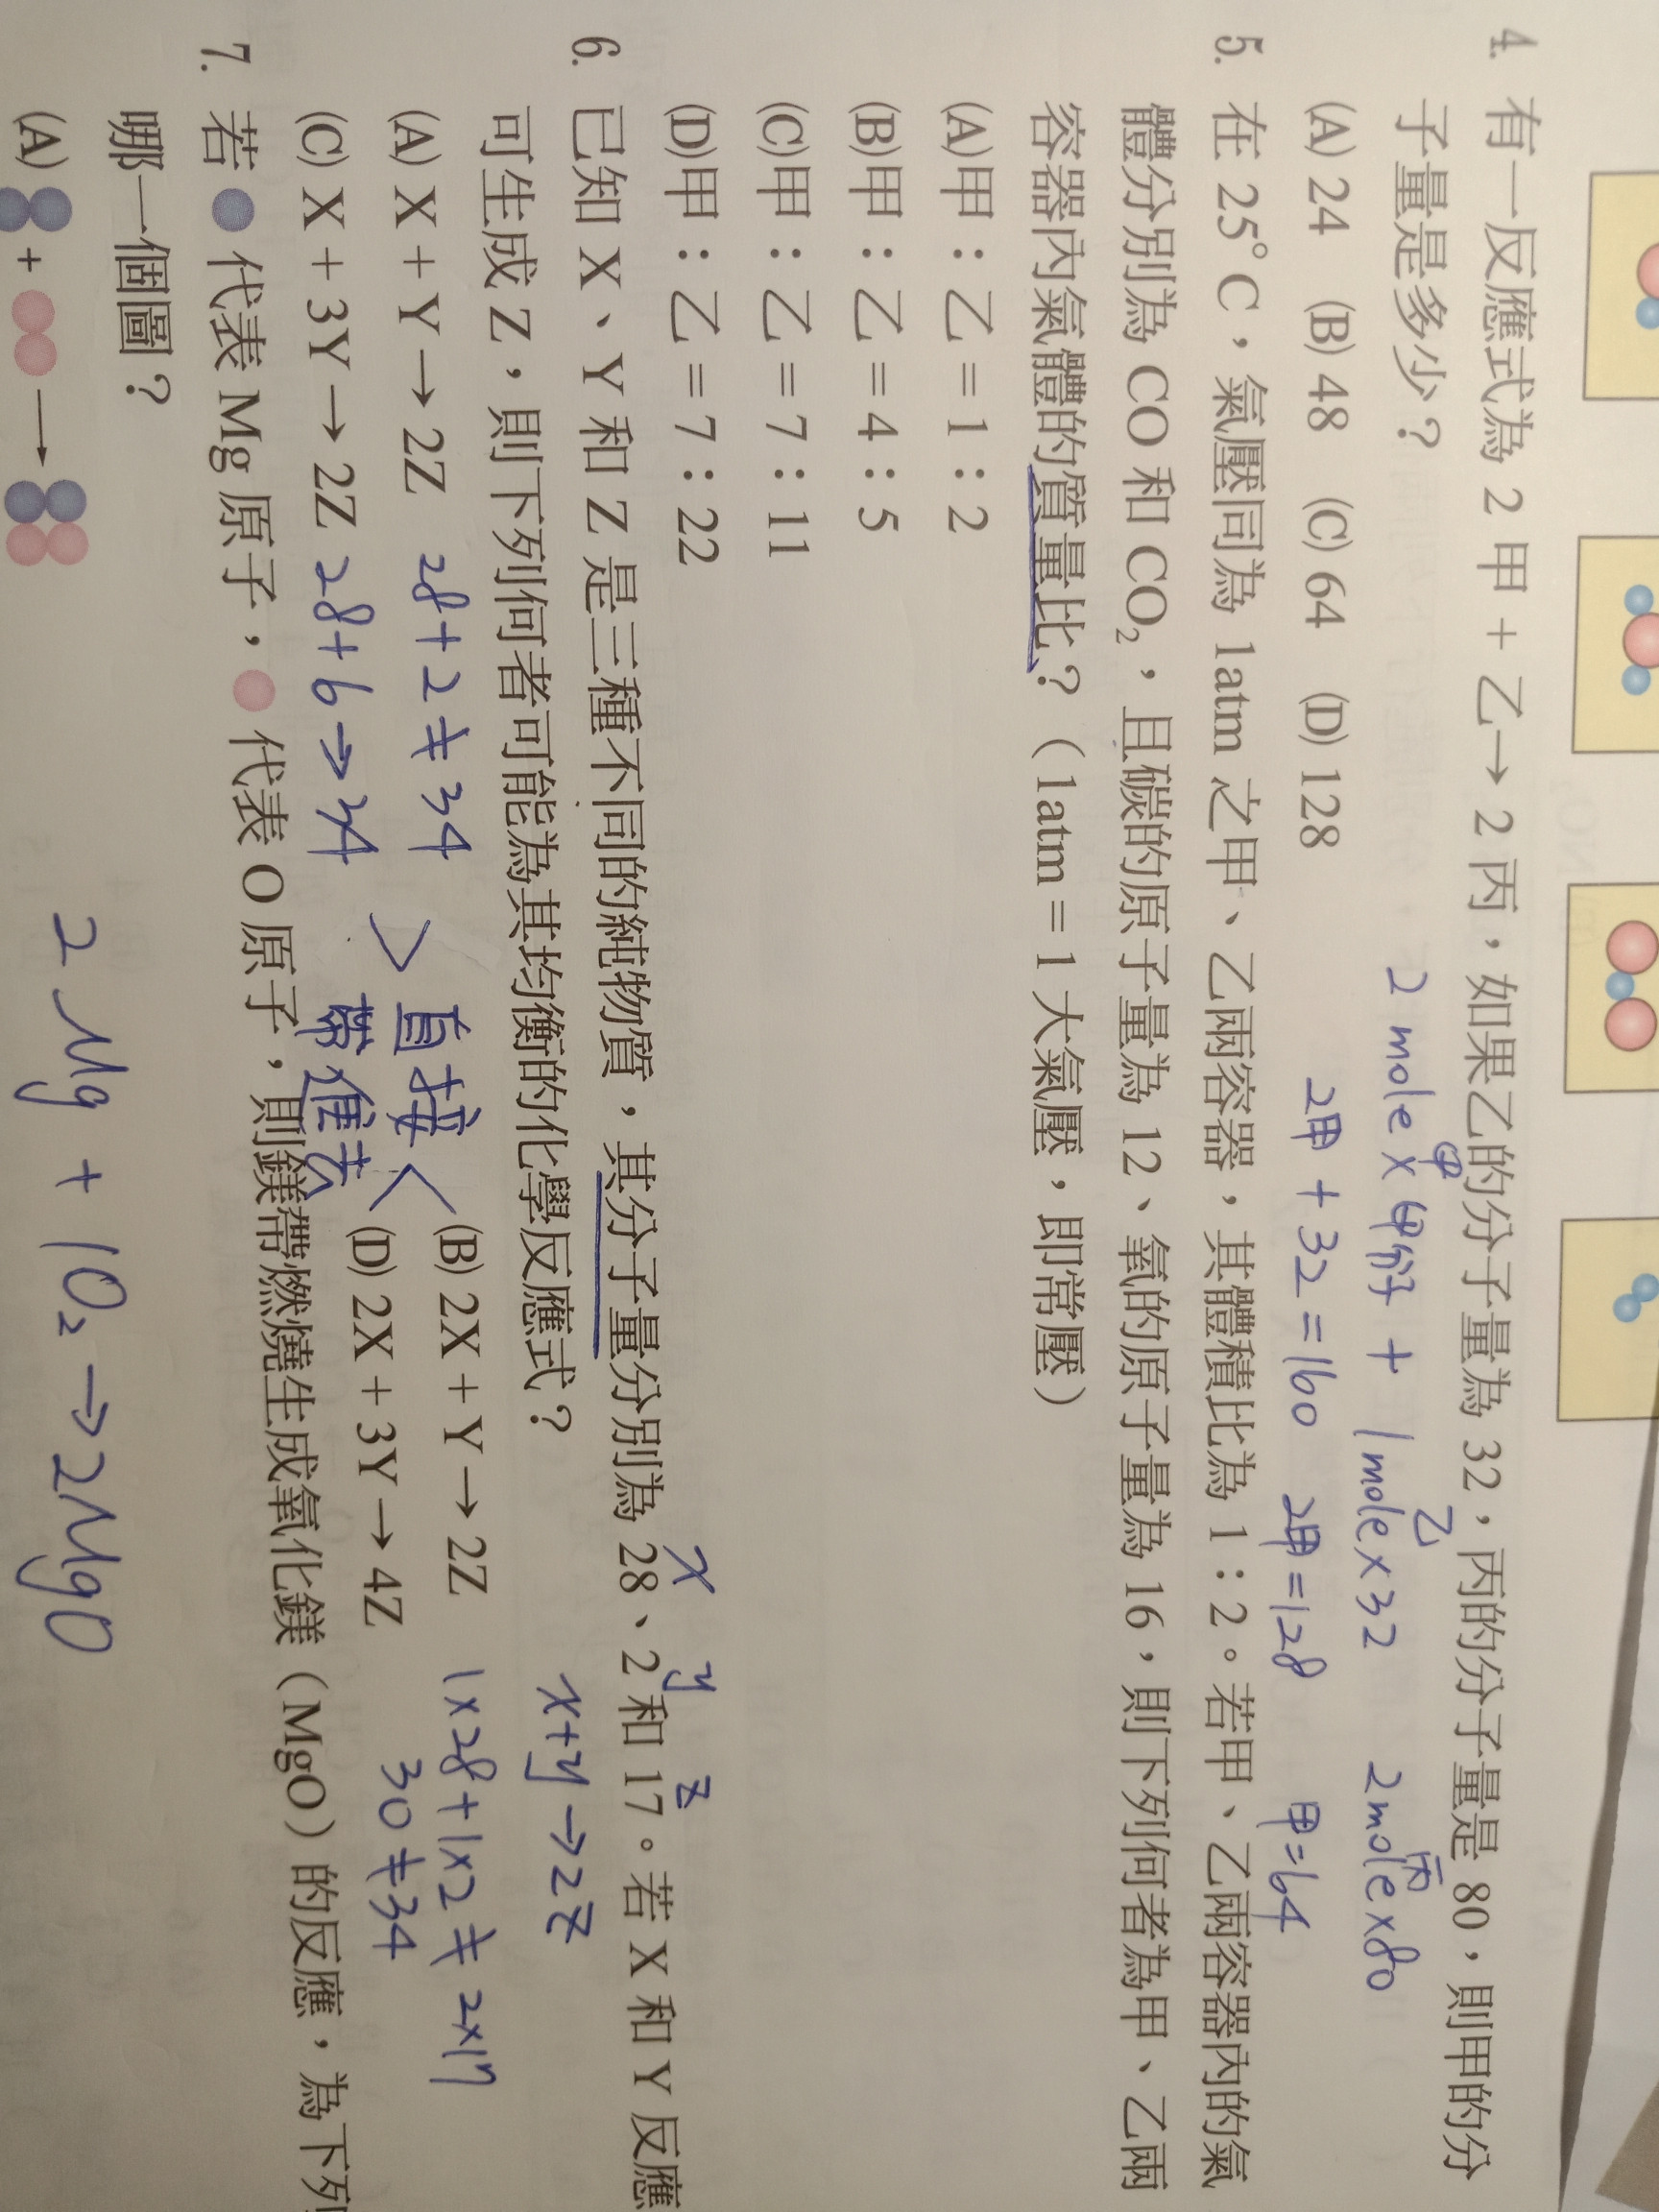 4. 有一反應式為 2 甲 + 乙 → 2 丙，如果乙的分子量為 32，丙的分子量是 80，則甲的分
子量是多少？
甲 乙 丙
2 mole × 甲分子 + 1mole×32 2mole×80
(A) 24 (B) 48 (C) 64 (D) 128
2甲 + 32 = 160 2甲 = 128 甲=64
5. 在 25°C，氣壓同為 1atm 之甲、乙兩容器，其體積比為 1：2。若甲、乙兩容器內的氣
體分別為 CO 和 CO₂，且碳的原子量為 12、氧的原子量為 16，則下列何者為甲、乙兩
容器內氣體的質量比？（1atm = 1 大氣壓，即常壓）
(A)甲：乙＝1：2
(B)甲：乙＝4：5
(C)甲：乙＝7：11
(D)甲：乙＝7：22
x y z
6. 已知 X、Y 和 Z 是三種不同的純物質，其分子量分別為 28、2 和 17。若 X 和 Y 反應
可生成 Z，則下列何者可能為其均衡的化學反應式？
x+y→2z
(A) X + Y → 2Z 28+2≠34 (B) 2X + Y → 2Z 1×28+1×2≠2×17
直接 30≠34
(C) X + 3Y → 2Z 28+6→34 (D) 2X + 3Y → 4Z
帶進去
7. 若 代表 Mg 原子， 代表 O 原子，則鎂帶燃燒生成氧化鎂（MgO）的反應，為下列
哪一個圖？
(A) + →
2Mg + 1O₂ → 2MgO